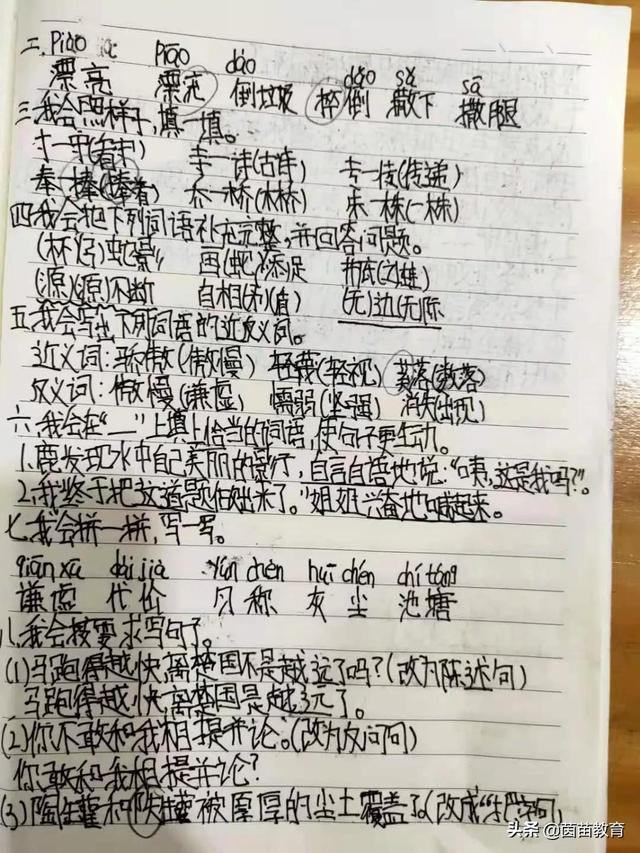 二. piào piāo dào dǎo sǎ sā
漂亮 漂流 倒垃圾 摔倒 散下 撒腿
三、我会照样子,填一填。
寸—守(看守) 寺—诗(古诗) 专—传(传递)
奉—捧(捧着) 乔—桥(木桥) 朱—株(一株)
四、我会把下列词语补充完整,并回答问题。
(杯)(弓)蛇影 画(蛇)添足 井底(之)(蛙)
(源)(源)不断 自相(矛)(盾) (无)边(无)际
五、我会写出下列词语的近反义词。
近义词:骄傲(傲慢) 轻蔑(轻视) (散落)
反义词:傲慢(谦虚) 懦弱(坚强) 消失(出现)
六、我会在“__”上填上恰当的词语,使句子更生动。
1.鹿发现水中自己美丽的影子,自言自语地说:“咦,这是我吗?”。
2.“我终于把这道题做出来了。”姐姐兴奋地喊起来。
七、我会拼一拼,写一写。
qiān xū dài jià yún chèn huī chén chí táng
谦虚 代价 匀称 灰尘 池塘
八、我会按要求写句子。
(1)马跑得越快,离楚国不是越远了吗?(改为陈述句)
马跑得越快,离楚国是越远了。
(2)你不敢和我相提并论。(改为反问句)
你敢和我相提并论?
(3)陶罐和铁罐被厚厚的尘土覆盖了。(改成“把”字句)
头条 @茵苗教育